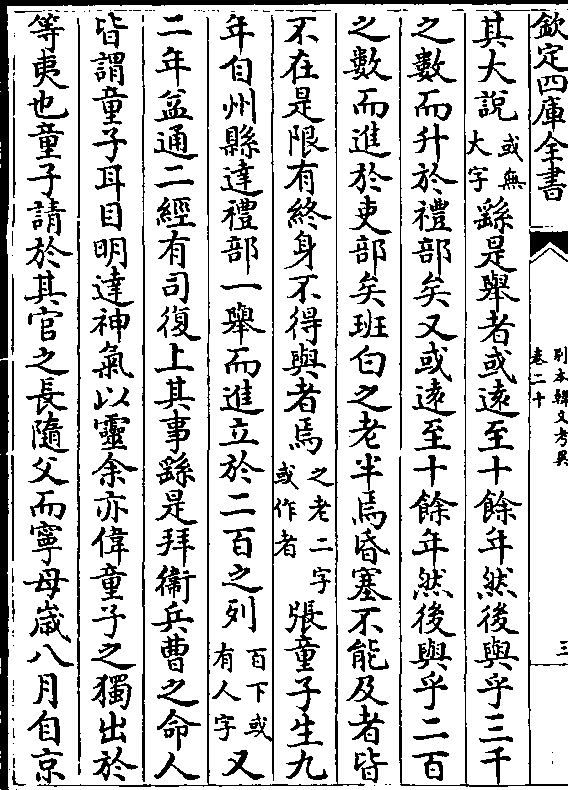 欽定四庫全書
別本韓文考異
卷二十
三
其大說或無大字繇是舉者或遠至十餘年然後與乎三千
之數而升於禮部矣又或遠至十餘年然後與乎二百
之數而進於吏部矣班白之老半焉昏塞不能及者皆
不在是限有終身不得與者焉之老二字或作者張童子生九
年自州縣達禮部一舉而進立於二百之列百下或有人字又
二年益通二經有司復上其事繇是拜衞兵曹之命人
皆謂童子耳目明達神氣以靈余亦偉童子之獨出於
等夷也童子請於其官之長隨父而寧母歲八月自京